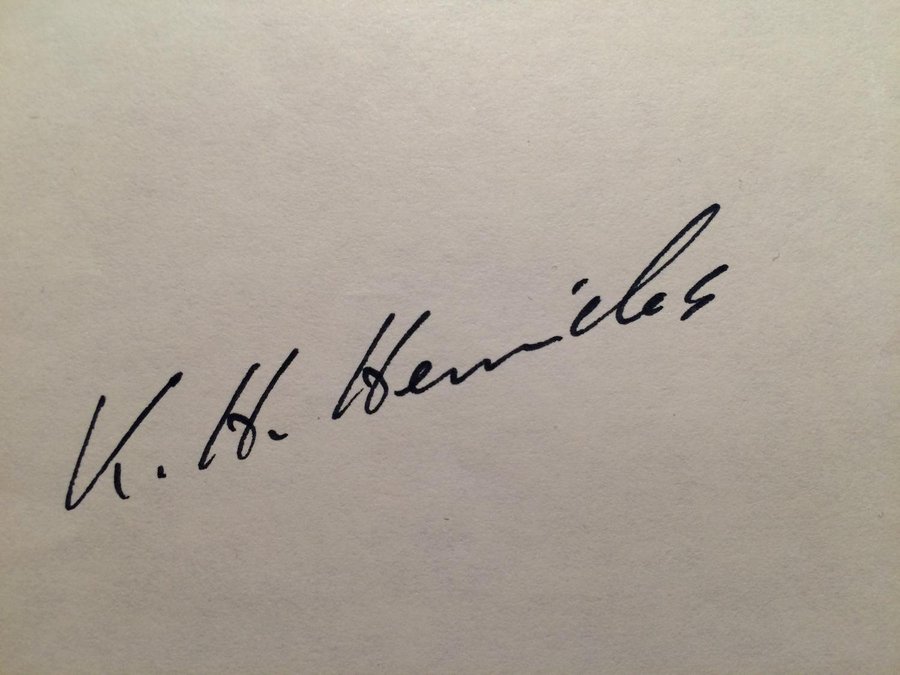 K. H. Hennicles